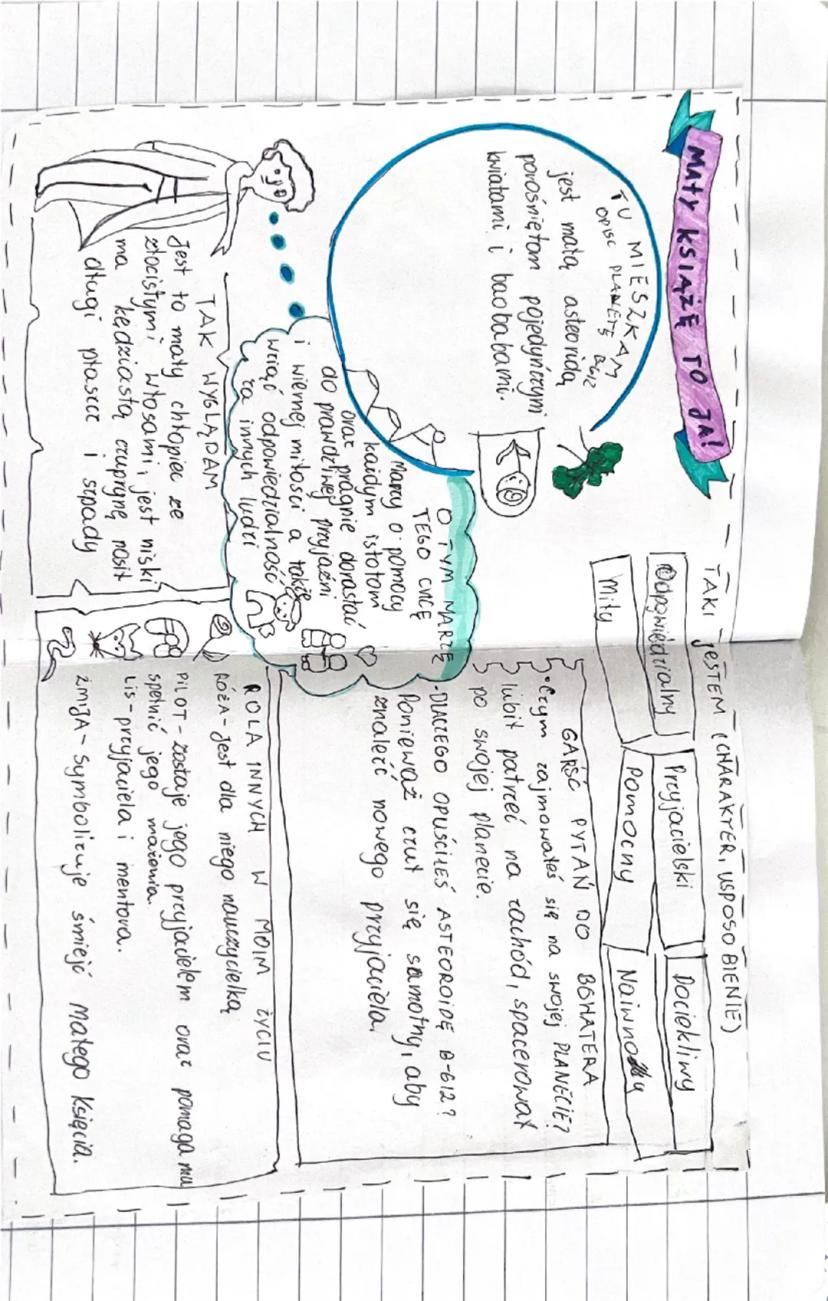 MAŁY KSIĄŻĘ TO JA!
TU MIESZKAM
OPISZ PLANETĘ
jest małą asteroidą
porośniętom pojedyńczymi
kwiatami i baobabami.
O TYM MARZĘ
TEGO CHCĘ
Marzy o pomocy
każdym istotom
oraz pragnie dorastać
do prawdziwej przyjaźni
i wiernej miłości a także
wciąż odpowiedzialność
za innych ludzi
TAK WYGLĄDAM
Jest to mały chłopiec ze
złocistymi włosami, jest niski
ma kędziastą czuprynę nosił
długi płaszcz i szpady
TAKI JESTEM (CHARAKTER, USPOSOBIENIE)
Odpowiedzialny
Przyjacielski
Dociekliwy
Miły
Pomocny
Naiwny
GARŚĆ PYTAŃ DO BOHATERA
• Czym zajmowałeś się na swojej PLANECIE?
lubił patrzeć na zachód, spacerował
po swojej planecie.
- DLACZEGO OPUŚCIŁEŚ ASTEROIDĘ B-612?
Ponieważ czuł się samotny, aby
znaleźć nowego przyjaciela.
ROLA INNYCH W MOIM ŻYCIU
RÓŻA - Jest dla niego nauczycielką
PILOT - zostaje jego przyjacielem oraz pomaga mu
spełnić jego marzenia.
LIS - przyjaciela i mentora.
ŻMIJA - Symbolizuje śmierć małego księcia.